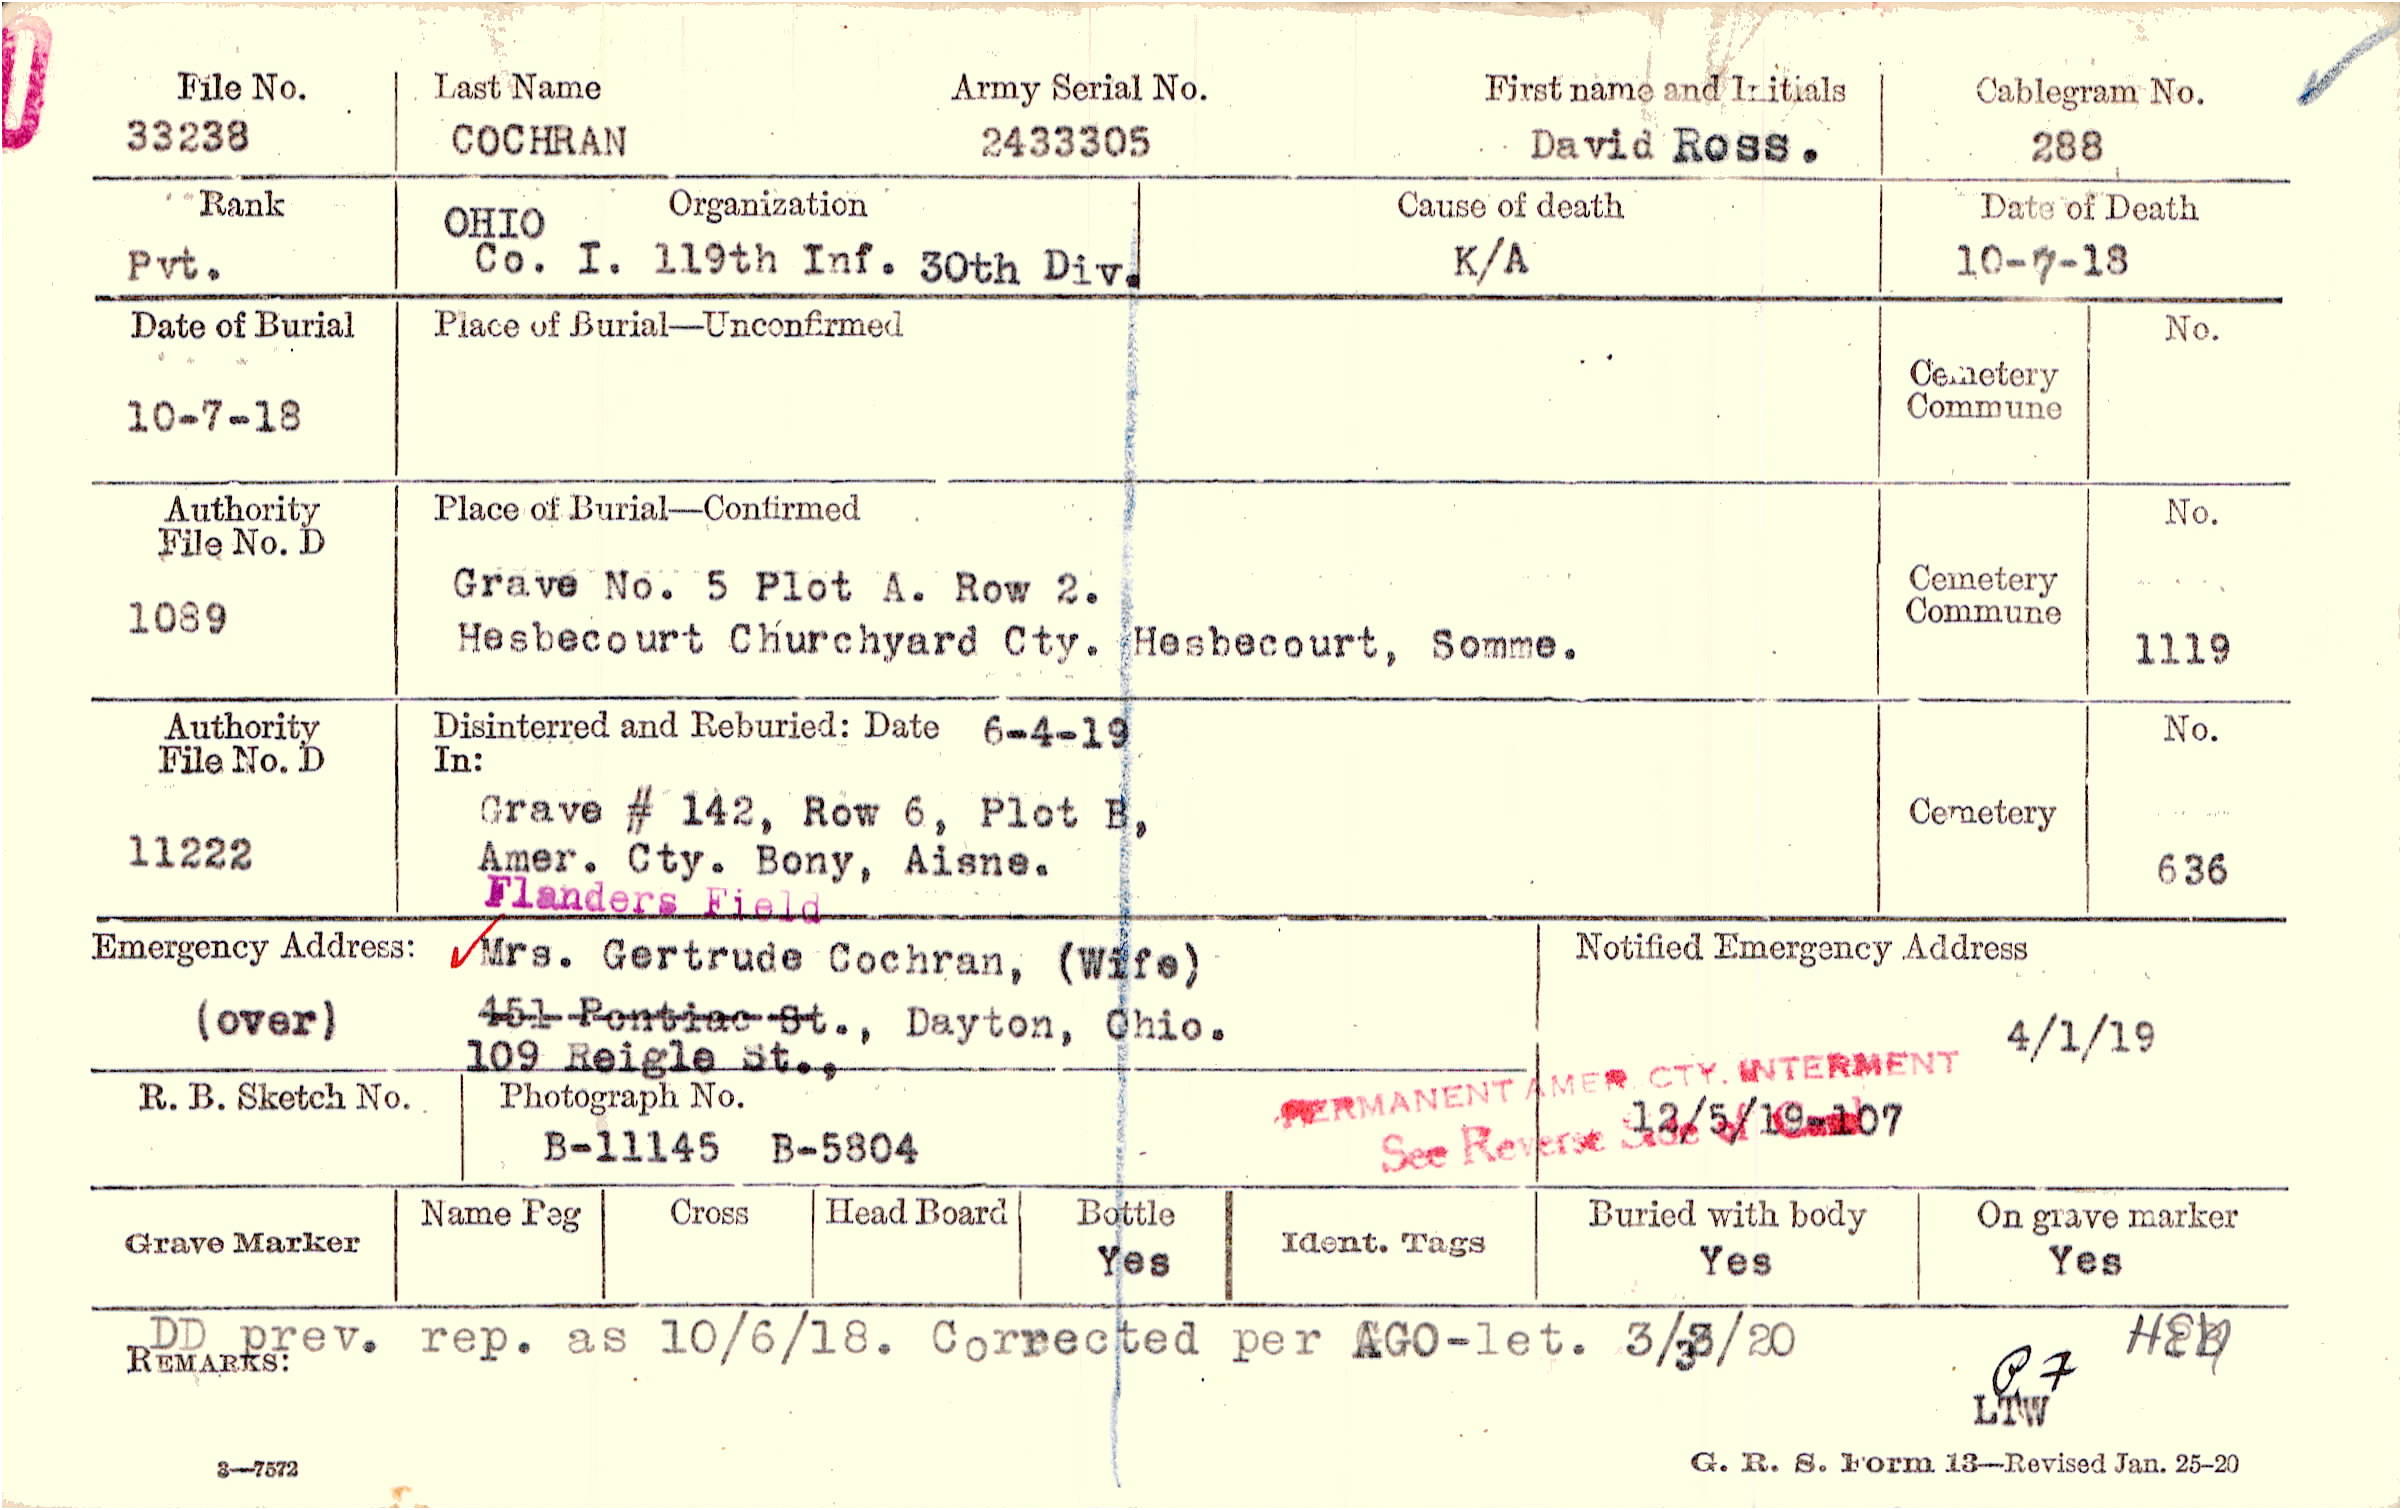 File No. Last Name Army Serial No. First name and Initials Cablegram No.
33238 COCHRAN 2433305 David Ross. 288
Rank Organization Cause of death Date of Death
OHIO
Pvt. Co. I. 119th Inf. 30th Div. K/A 10-7-18
Date of Burial Place of Burial—Unconfirmed No.
Cemetery
Commune
10-7-18
Authority Place of Burial—Confirmed No.
File No. D
Grave No. 5 Plot A. Row 2. Cemetery
Commune
1089
Hesbecourt Churchyard Cty. Hesbecourt, Somme. 1119
Authority Disinterred and Reburied: Date 6-4-19 No.
File No. D In:
Grave # 142, Row 6, Plot B, Cemetery
11222 Amer. Cty. Bony, Aisne. 636
Flanders Field
Emergency Address: Mrs. Gertrude Cochran, (Wife) Notified Emergency Address
(over) 451 Pontiac St., Dayton, Ohio. 4/1/19
109 Reigle St.,
R. B. Sketch No. Photograph No. PERMANENT AMER. CTY. INTERMENT
B-11145 B-5804 12/5/19-107
See Reverse Side of
Grave Marker Name Peg Cross Head Board Bottle Ident. Tags Buried with body On grave marker
Yes Yes Yes
DD prev. rep. as 10/6/18. Corrected per AGO-let. 3/3/20
REMARKS:
LTW
3—7572 G. R. S. Form 13—Revised Jan. 25-20